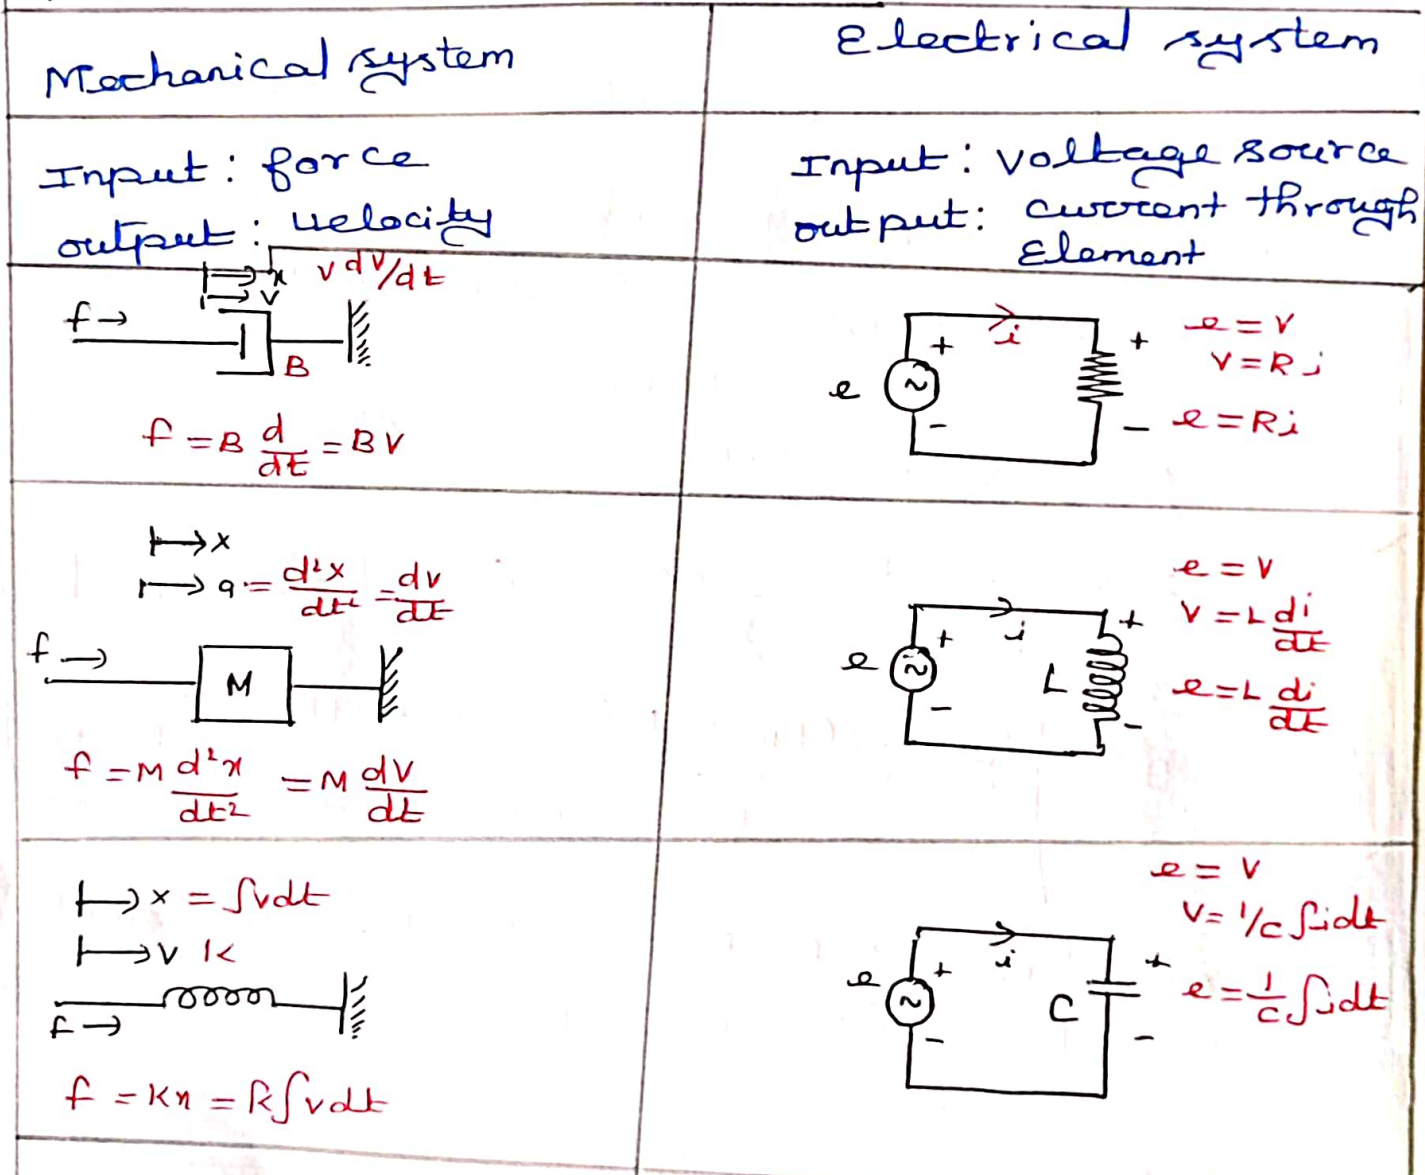 Mechanical system
Electrical system
Input: force
output: velocity
Input: voltage source
output: current through
Element
x v dv/dt
v
f→
B
f = B d/dt = BV
e
+
-
i
+
-
e = V
V = Ri
e = Ri
→x
→a = d²x/dt² = dv/dt
f→
M
f = M d²x/dt² = M dV/dt
e
+
-
i
L
+
-
e = V
V = L di/dt
e = L di/dt
→x = ∫vdt
→v K
f→
f = Kx = K∫vdt
e
+
-
i
C
+
-
e = V
V = 1/C ∫idt
e = 1/C ∫idt